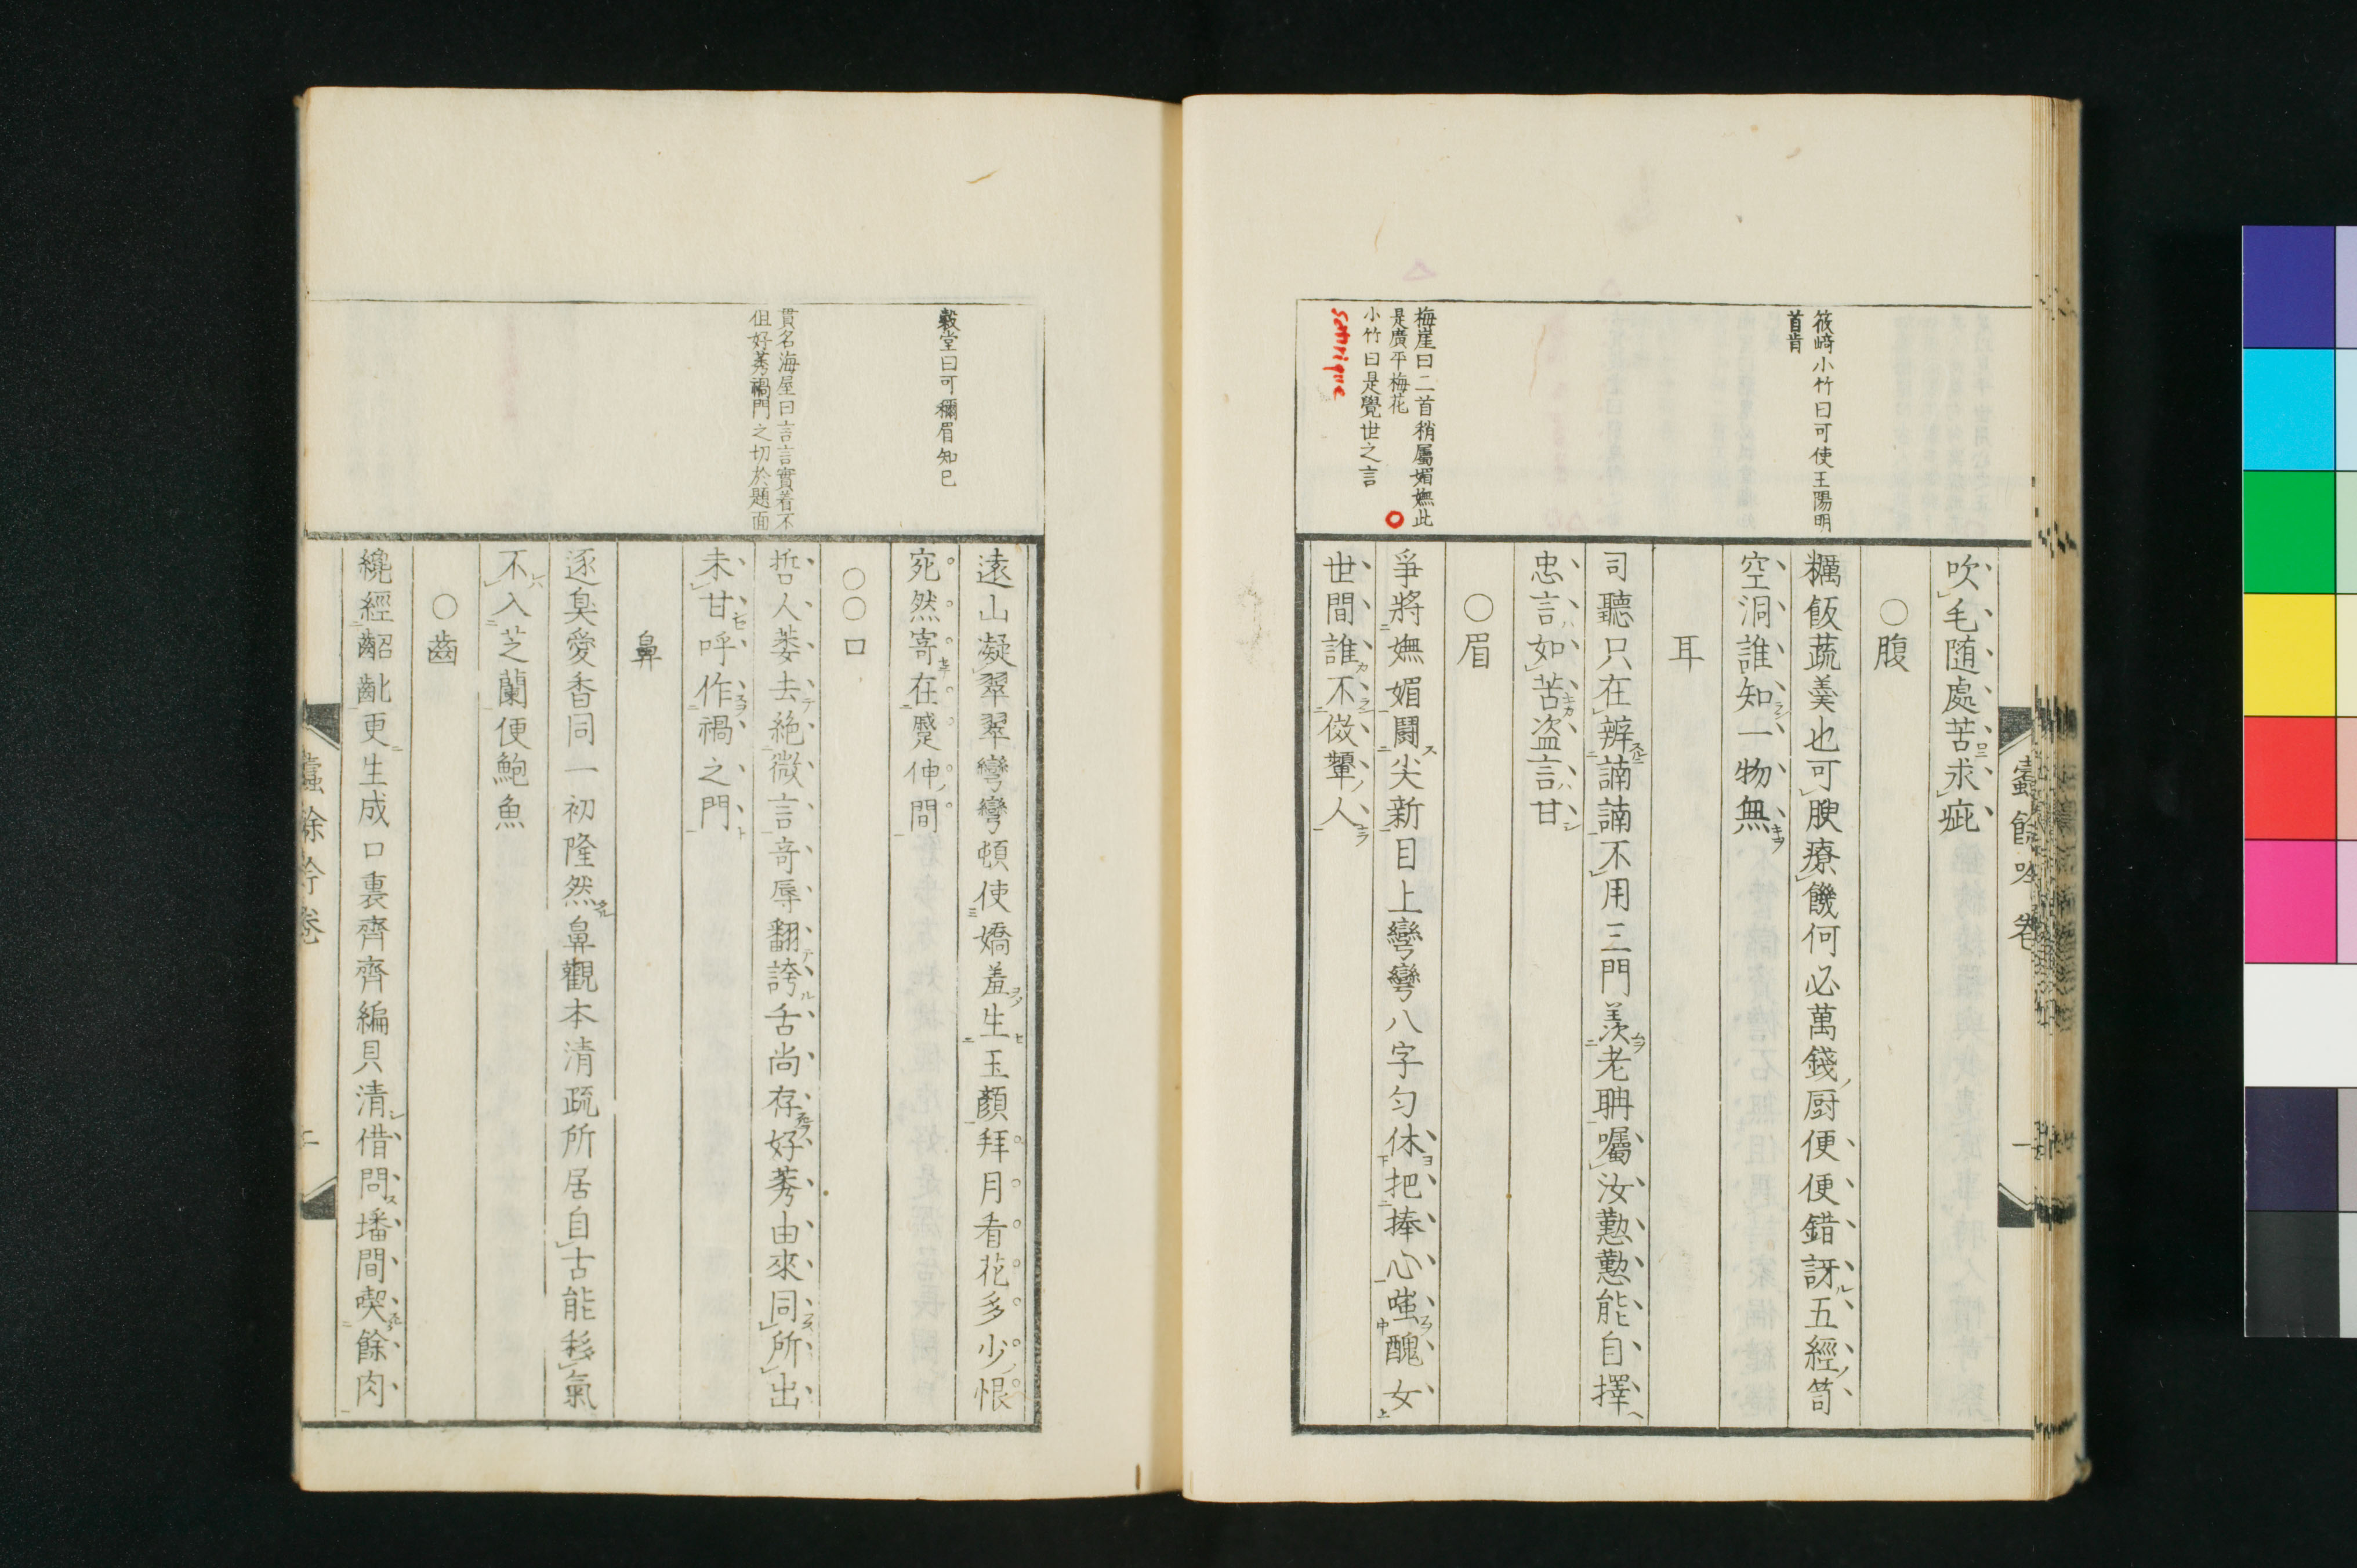 筱﨑小竹曰可使王陽明
首肯
梅崖曰二首稍屬媚嫵此
是廣平梅花
小竹曰是覺世之言
satirique
吹毛随處苦求疵
〇腹
糲飯蔬羹也可腴療饑何必萬錢厨便便錯訝五經笥
空洞誰知一物無
耳
司聽只在辨諵諵不用三門羨老聃囑汝懃懃能自擇
忠言如苦盗言甘
〇眉
爭將嫵媚鬪尖新目上彎彎八字勻休把捧心嗤醜女
世間誰不傚顰人
蠹餘吟 卷 一
榖堂曰可稱眉知己
貫名海屋曰言言實着不
但好莠禍門之切於題面
遠山凝翠翠彎彎頓使嬌羞生玉顏拜月看花多少恨
宛然寄在蹙伸間
〇〇口
哲人萎去絶微言奇辱翻誇舌尚存好莠由來同所出
未甘呼作禍之門
鼻
逐臭愛香同一初隆然鼻觀本清疏所居自古能移氣
不入芝蘭便鮑魚
〇齒
纔經齠齔更生成口裏齊齊編貝清借問墦間喫餘肉
蠹餘吟卷